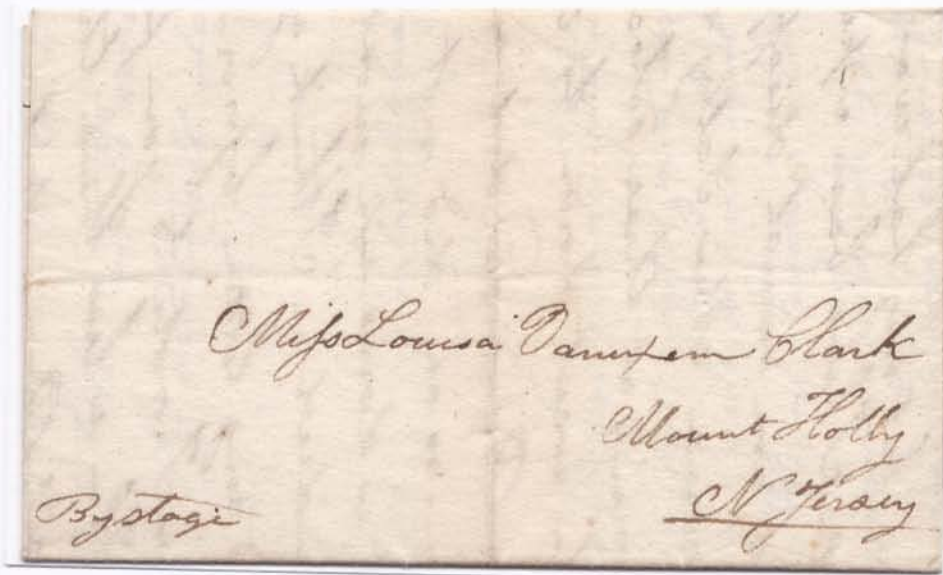 Miss Louisa Vanuxem Clark
Mount Holly
N Jersey
By stage